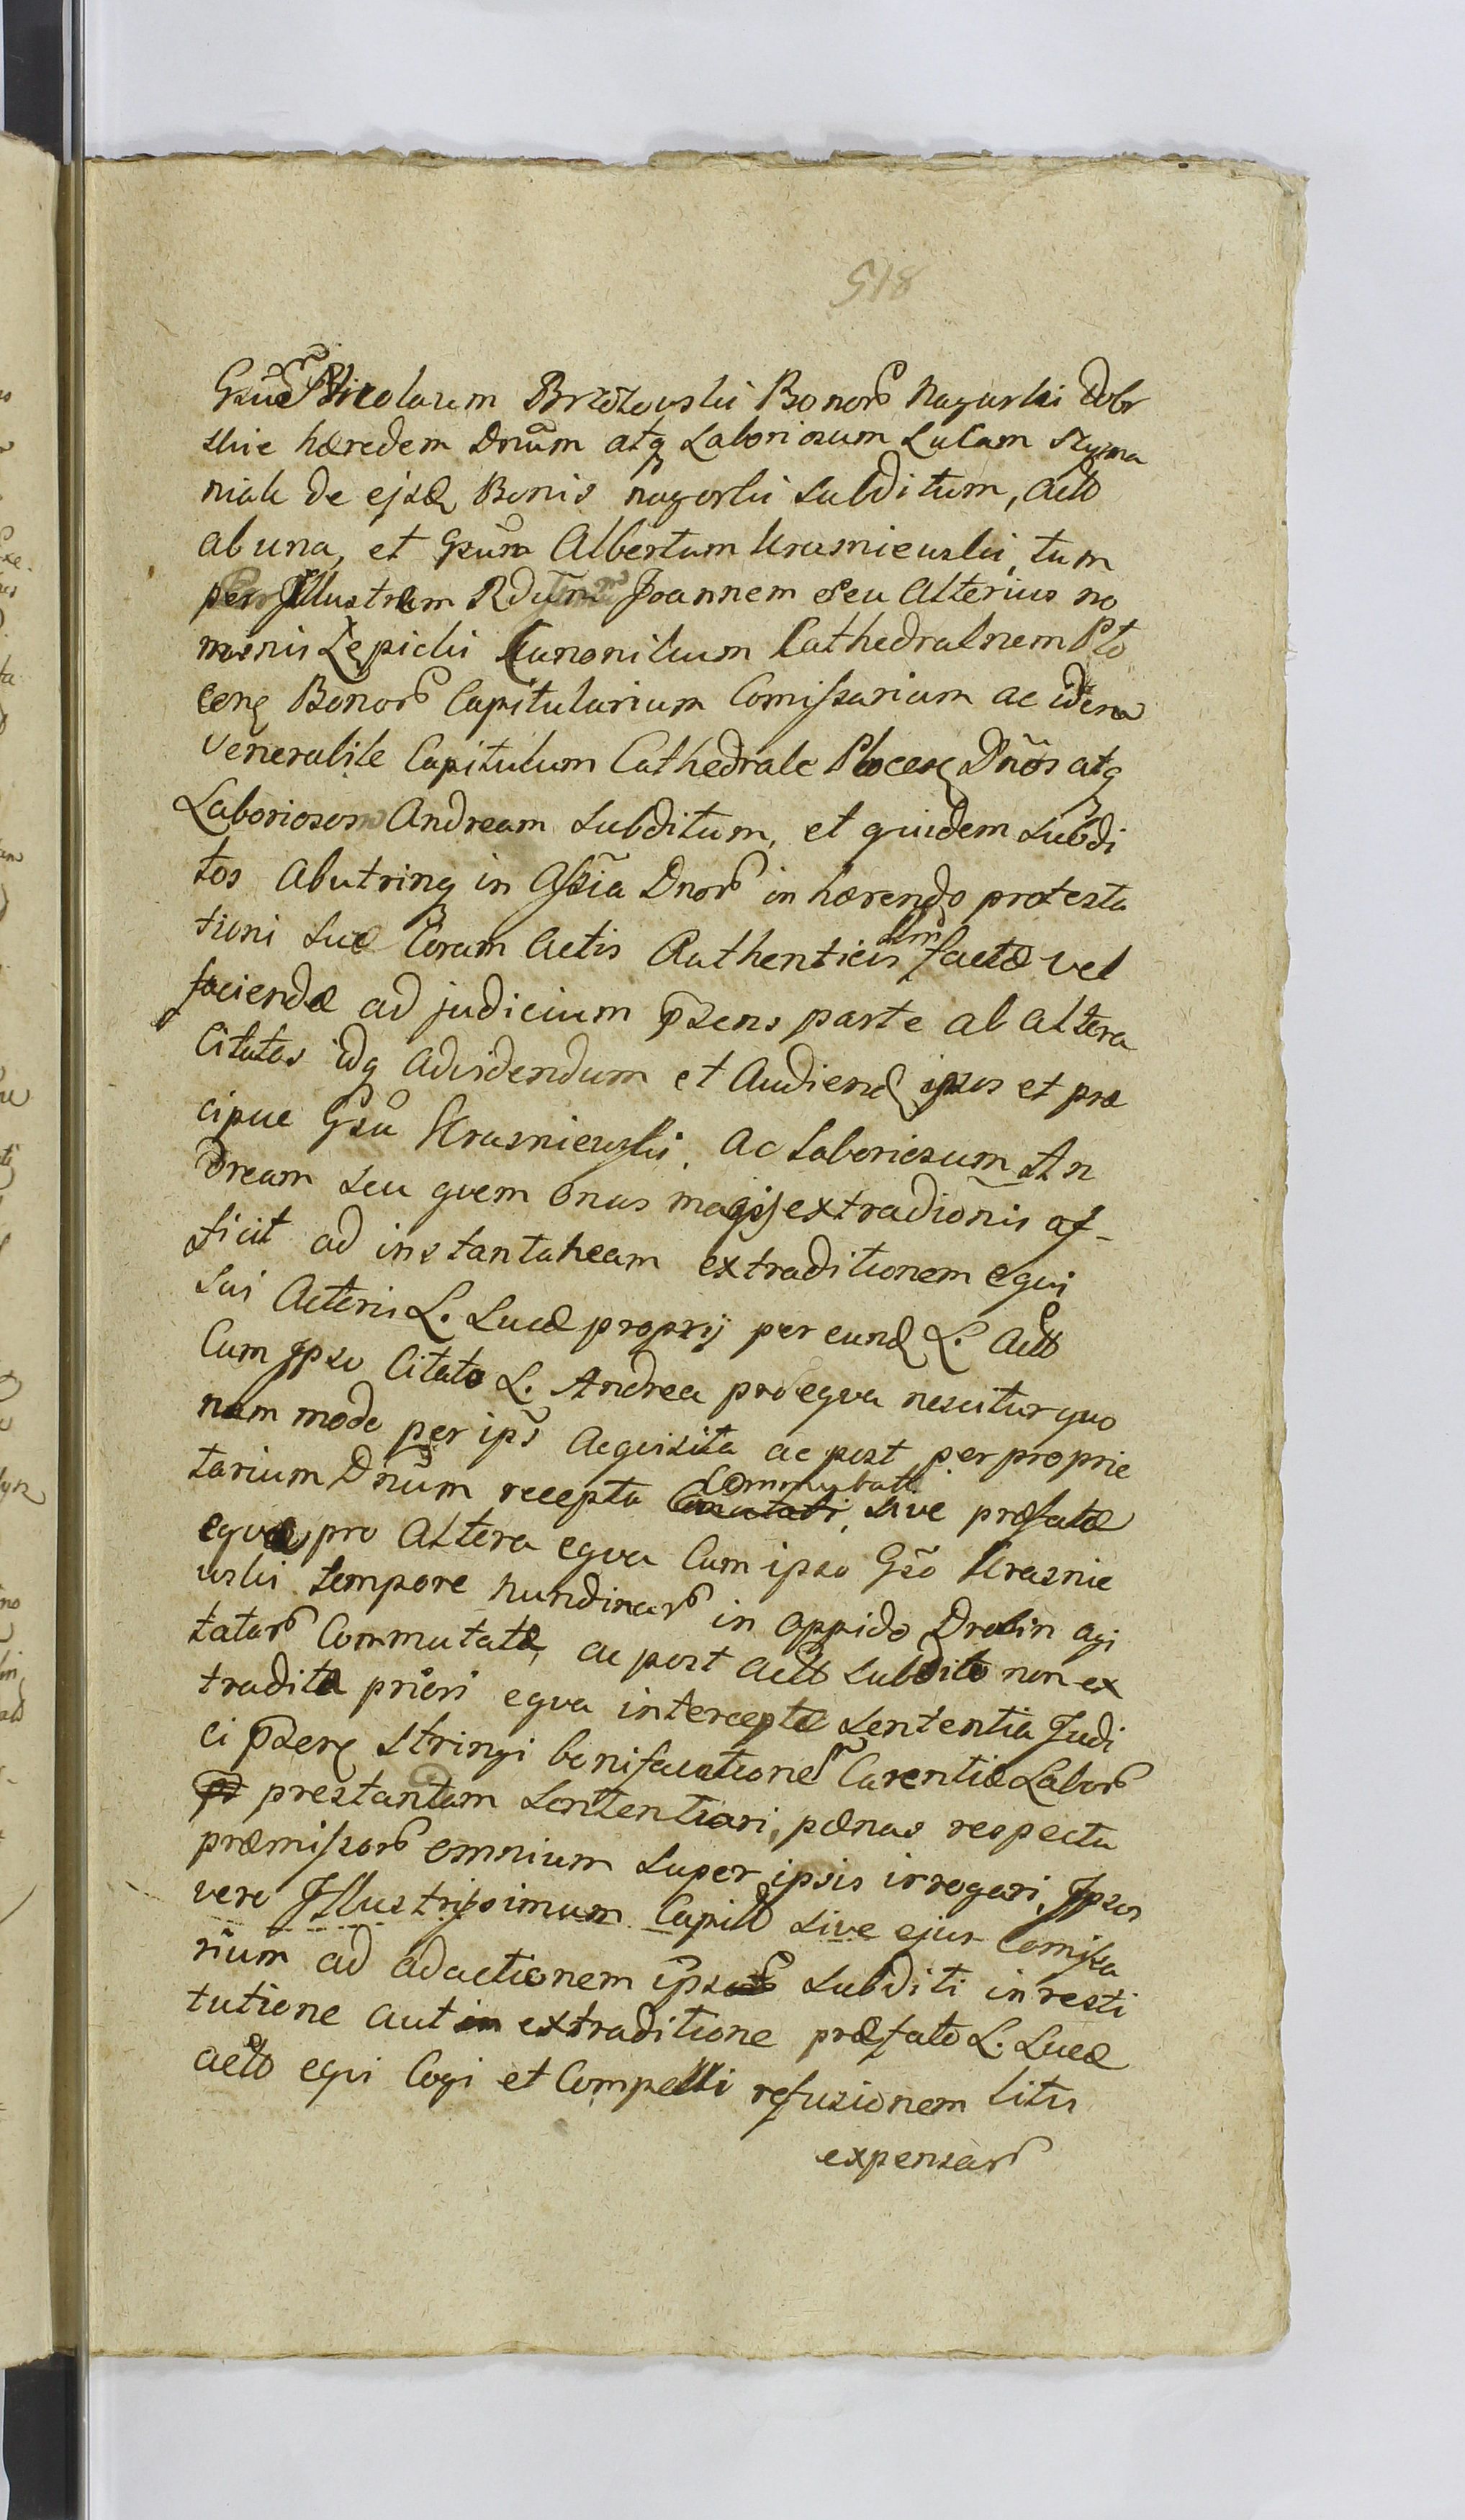 518
Gsũm Nicolaum Brzozowski Bonorͫ Nagurki Dobr
skie hæredem Dnũm atq Laboriosum Lucam Szyma
niak de ejsdͤ Bonis nagorki Subditum, Actt
ab una, et Gsũm Albertum Krasniewski, tum
per Illustrem Rdũm Joannem seu Alterius no
minis Lępicki Canonicum Cathedralnem Plo
cenͤ Bonorͫ Capitularium Comissarium ac idem
Venerabile Capitulum Cathedrale Plocenͤ Dños atq
Laboriosum Andream Subditum, et quidem Subdi
tos Abutrinq in Assĩa Dnorͫ in hærendo protesta
tioni suæ Coram Actis Authenticis factæ vel
faciendæ ad judicium p̃sens parte ab altera
Citatos idq advidendum et Audiendͤ ipsos et præ
cipue Gsũ Krasniewski, Ac Laboriosum An
dream seu quem onus magis extradiõnis af-
ficit ad instantaneam extraditionem equi
sui Actoris L. Lucæ proprij per eundͤ L. Actt
Cum Ipso Citato L. Andrea pro equa nescitur quo
nam modo per ips̃ Acquisita ac post per proprie
tarium Dnũm recepta Commutati, sive præfatæ
equæ pro Altera equa Cum ipso Gsõ Krasnie
wski tempore nundinarͫ in oppido Drobin agi
tatarͫ Commutatæ, ac post Actt Subdito non ex
tradita priori equa interceptæ Sententia Judi
ci p̃senͤ Stringi bonificationem Carentiæ Laborͫ
prestantam Sententiari, pænas respectu
præmissorͫ omnium super ipsis irrogari, Ipsos
vero Illustrissimum Capitt sive ejus Comissa
rium ad adactionem ipsorͫ Subditi in resti
tutione aut extraditione præfato L. Lucæ
Actt equi Cogi et Compelli refusionem litis
expensarͫ